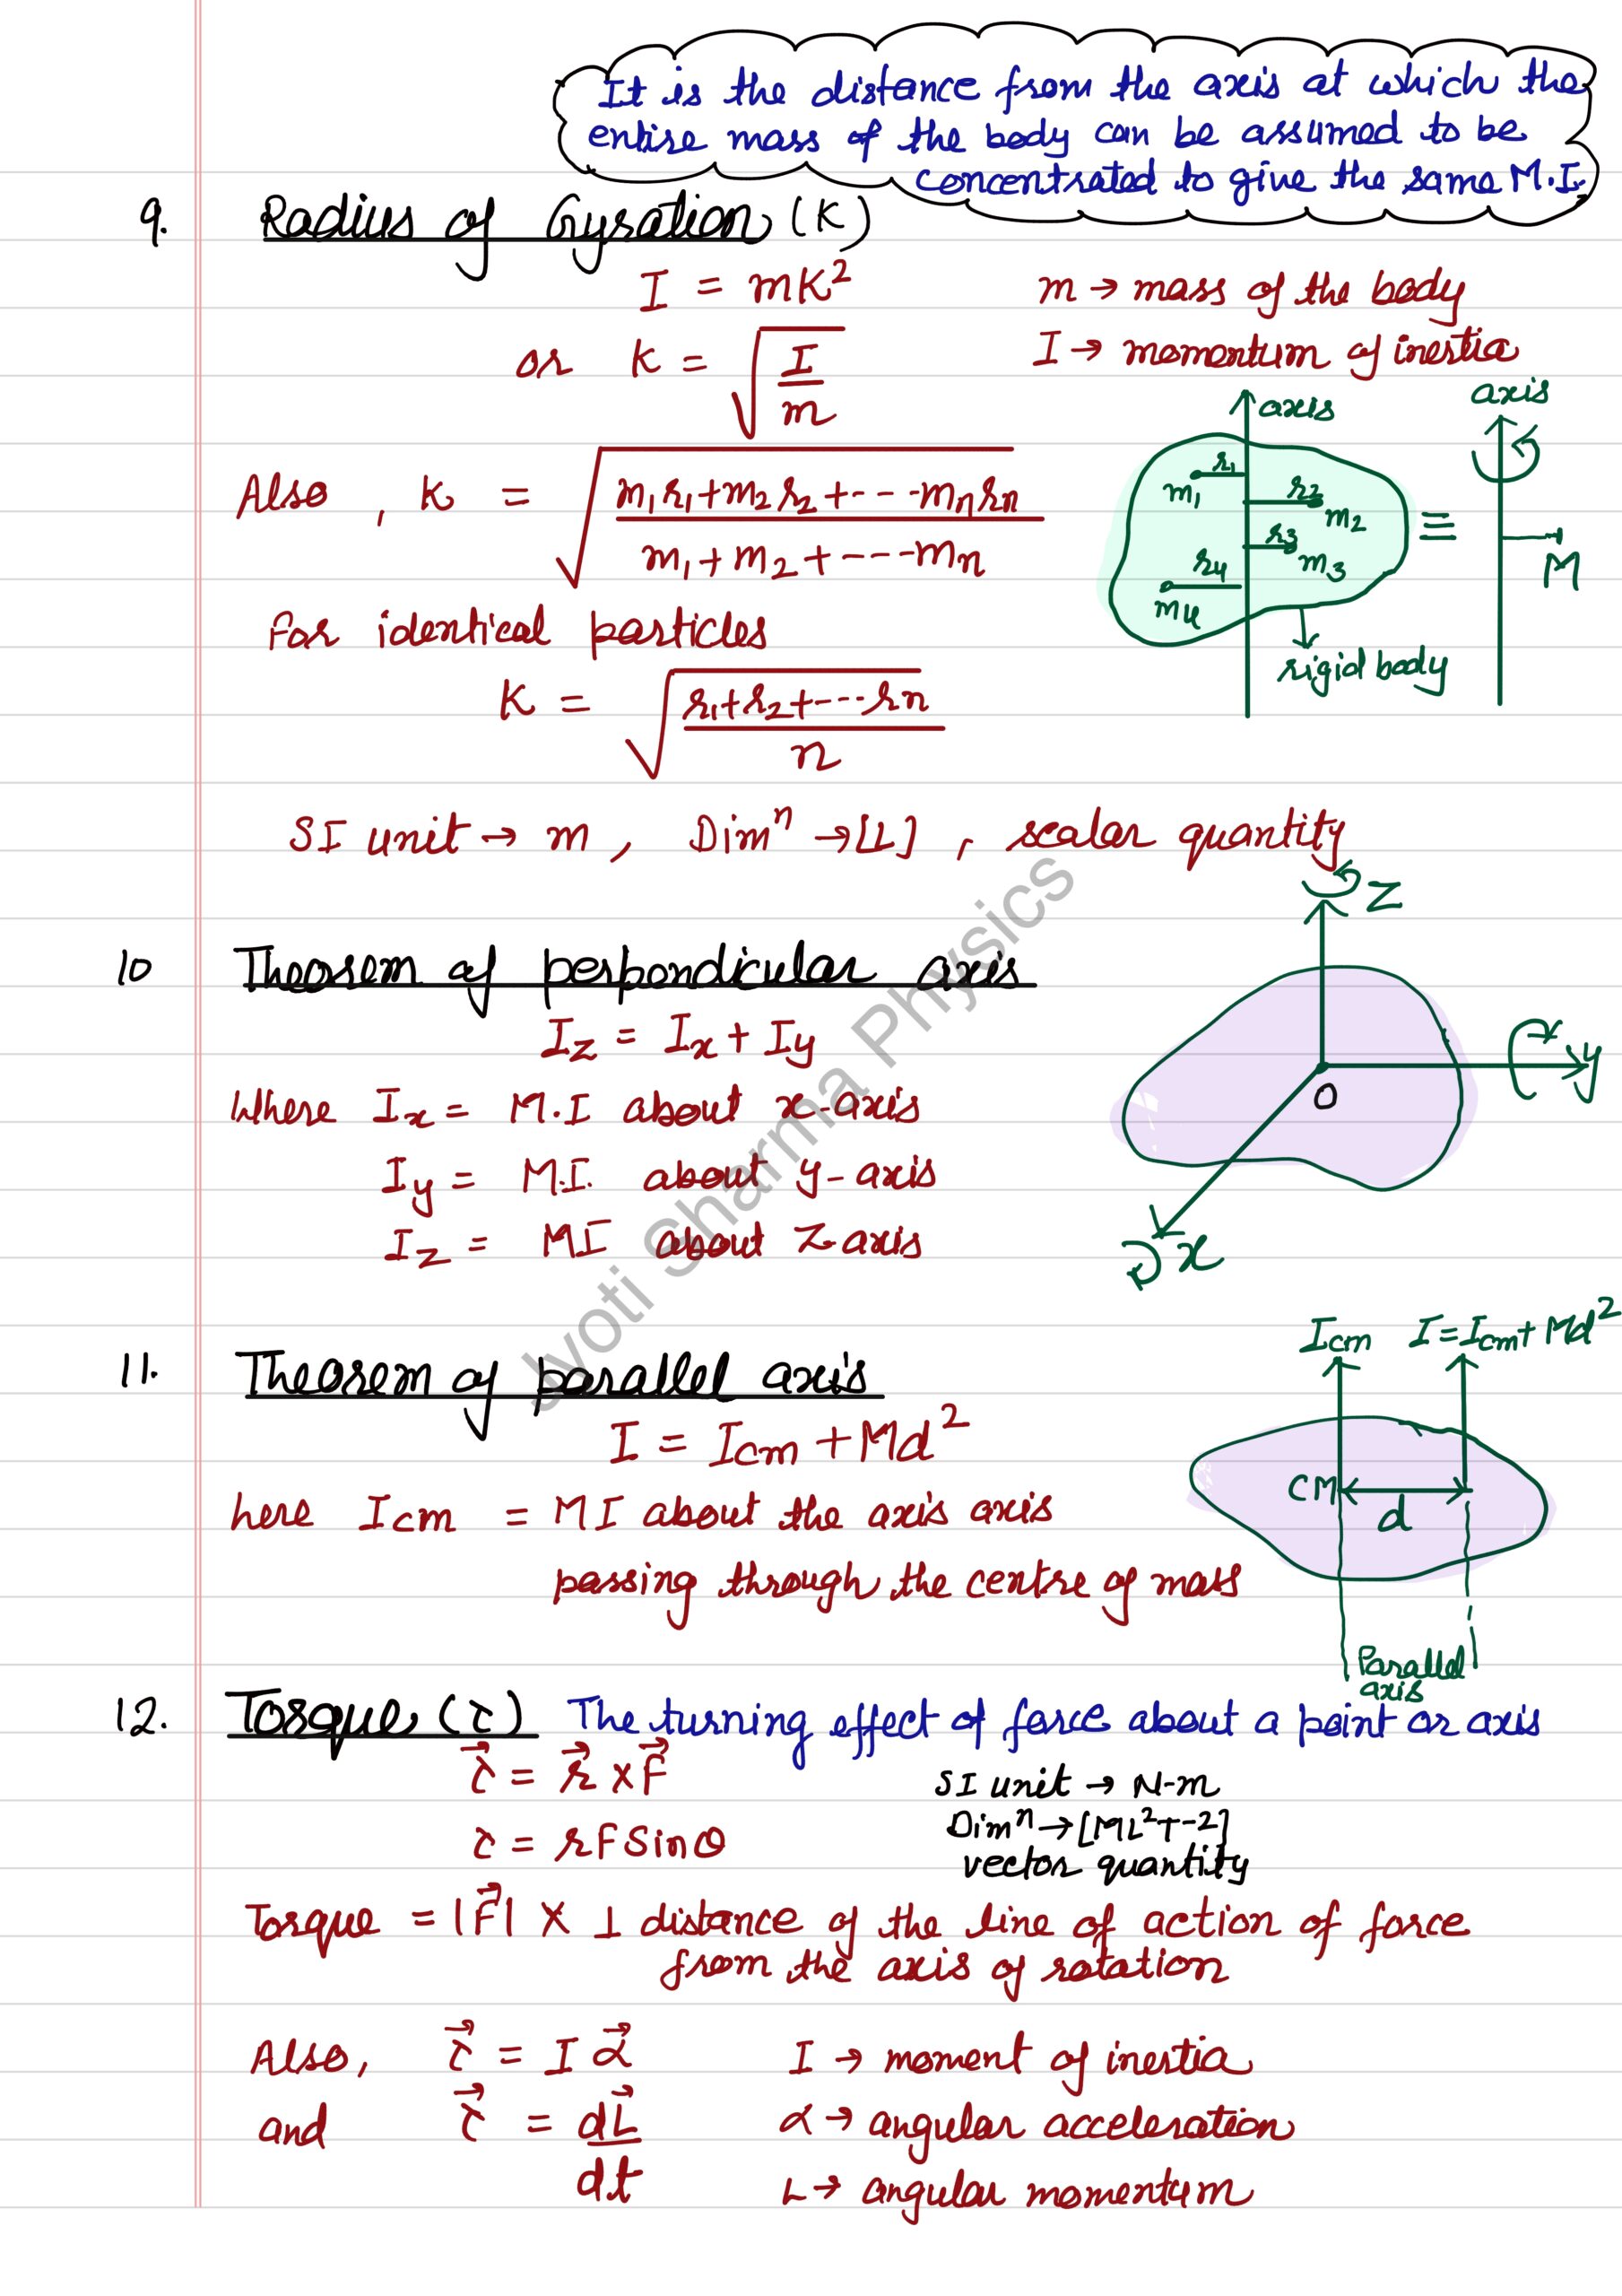 It is the distance from the axis at which the
entire mass of the body can be assumed to be
concentrated to give the same M.I.
9. Radius of Gyration (K)
I = mK²
m → mass of the body
or K = √(I/m)
I → momentum of inertia
axis
axis
Also, K = √((m₁r₁+m₂r₂+----mₙrₙ)/(m₁+m₂+----mₙ))
r₁
m₁
r₂
m₂
r₃
m₃
r₄
m₄
≡
M
rigid body
For identical particles
K = √((r₁+r₂+---rₙ)/n)
SI unit → m, Dimⁿ → [L], scalar quantity
10 Theorem of perpendicular axis
Z
I_z = I_x + I_y
Where I_x = M.I about x-axis
I_y = M.I. about y-axis
I_z = MI about Z-axis
O
y
x
11. Theorem of parallel axis
Icm I = Icm + Md²
I = Icm + Md²
here Icm = MI about the axis axis
passing through the centre of mass
CM
d
Parallel
axis
12. Torque (τ) The turning effect of force about a point or axis
τ⃗ = r⃗ × F⃗
SI unit → N-m
Dimⁿ → [ML²T-2]
τ = rF Sinθ
vector quantity
Torque = |F⃗| × ⊥ distance of the line of action of force
from the axis of rotation
Also, τ⃗ = I α⃗
I → moment of inertia
and τ⃗ = dL⃗/dt
α → angular acceleration
L → angular momentum
Jyoti Sharma Physics